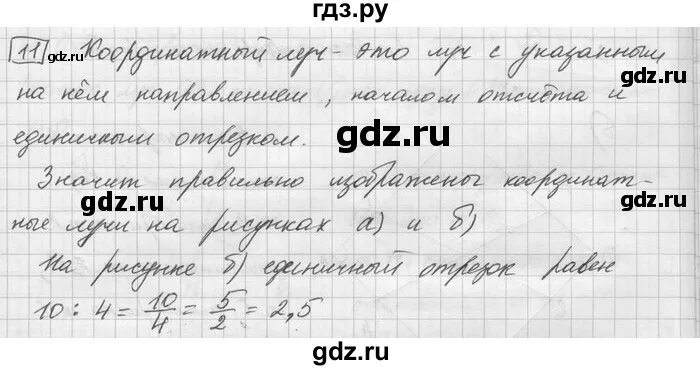 гдз.ру
11 Координатный луч - это луч с указанным
gdz.ru gdz.ru
на нём направлением, началом отсчёта и
gdz.ru
единичным отрезком.
Значит правильно изображены координат-
gdz.ru gdz.ru
ные лучи на рисунках а) и б)
На рисунке б) единичный отрезок равен
10 : 4 = 10/4 = 5/2 = 2,5
gdz.ru gdz.ru